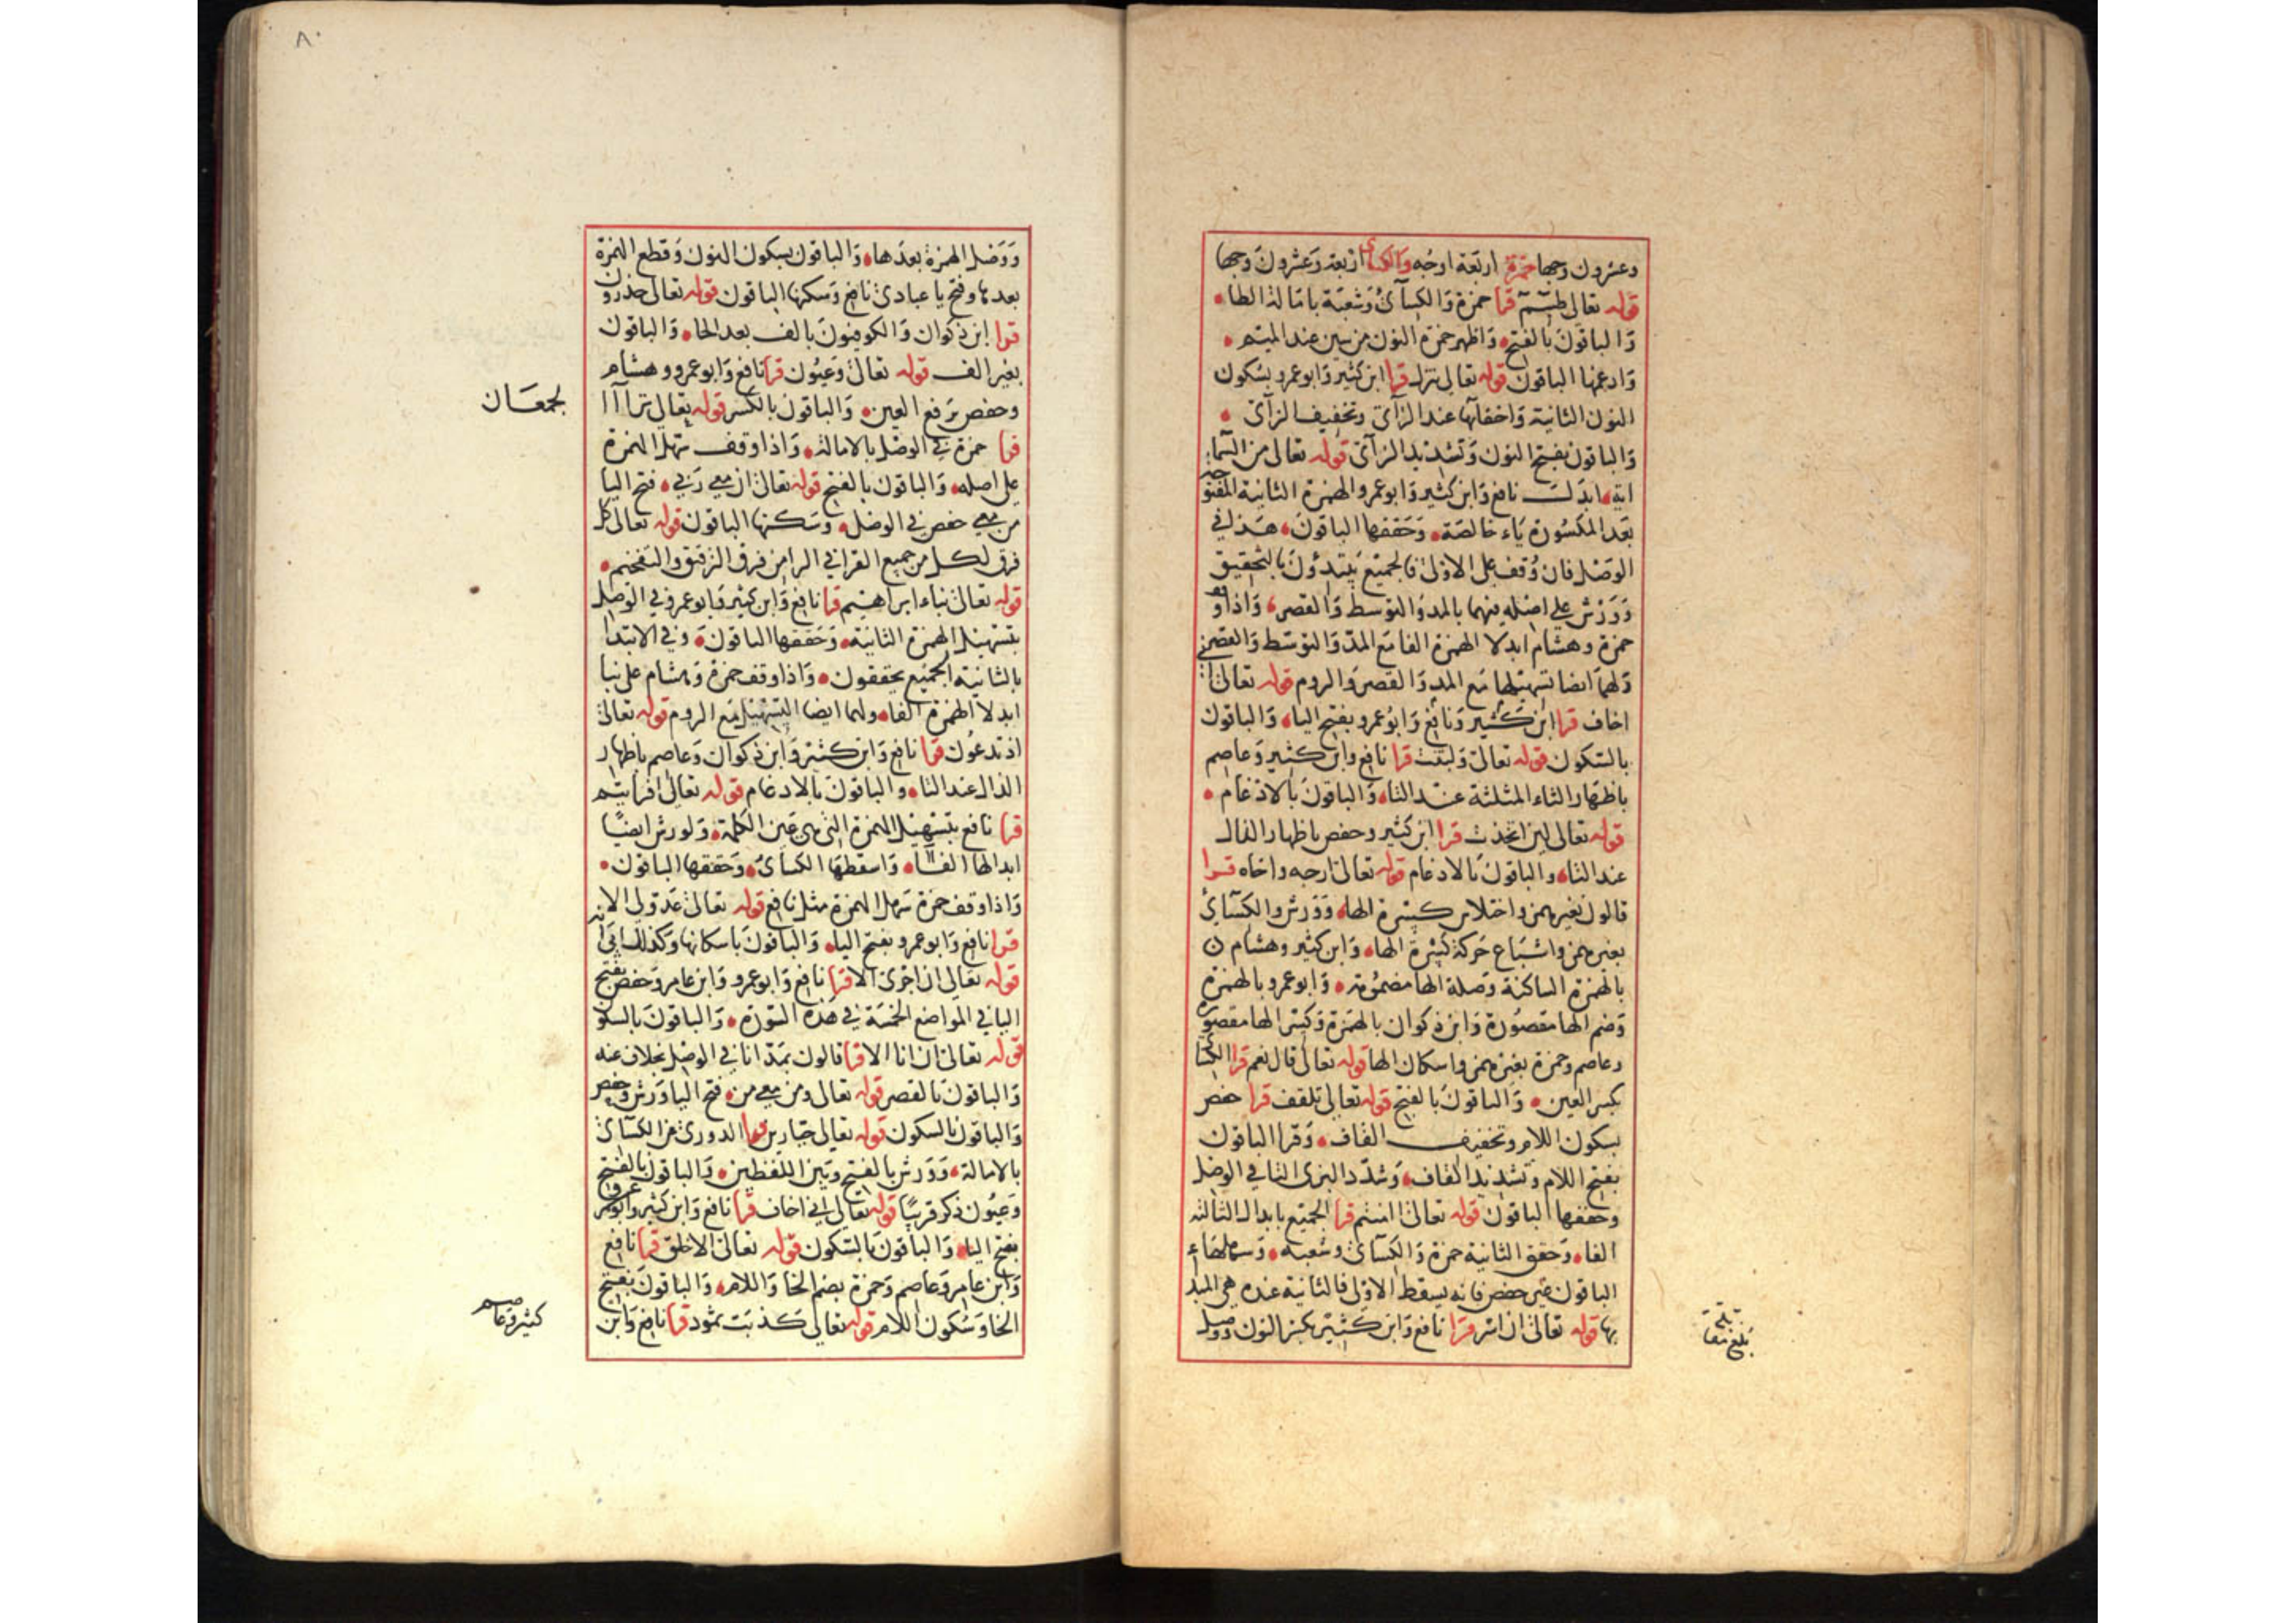 وعشرون وجها حمزة اربعة اوجه والكسائى اربعة وعشرون وجها
قوله تعالى طسم قرا حمزة والكسائى وشعبة بامالة الطا
والباقون بالفتح واظهر حمزة النون من سين عند الميم
وادغمها الباقون قوله تعالى ننزل قرا ابن كثير وابوعمرو بسكون
النون الثانية واخفائها عند الزاى وتخفيف الزاى
والباقون بفتح النون وتشديد الزاى قوله تعالى من السماء
اية ابدلت نافع وابن كثير وابوعمرو الهمزة الثانية المفتوحة
بعد المكسورة ياء خالصة وحققها الباقون هذا فى
الوصل فان وقف على الاولى فالجميع يبتدؤن بالتحقيق
وورش على اصله فيهما بالمد والتوسط والقصر واذا وقف
حمزة وهشام ابدلا الهمزة الفا مع المد والتوسط والقصر
ولهما ايضا تسهيلها مع المد والقصر والروم قوله تعالى انى
اخاف قرا ابن كثير ونافع وابوعمرو بفتح اليا والباقون
بالسكون قوله تعالى ولبثت قرا نافع وابن كثير وعاصم
باظهار الثاء المثلثة عند التاء والباقون بالادغام
قوله تعالى لين اتخذت قرا ابن كثير وحفص باظهار الذال
عند التاء والباقون بالادغام قوله تعالى ارجه واخاه قرا
قالون بغير همز واختلاس كسرة الها وورش والكسائى
بغير همز واشباع حركة كسرة الها وابن كثير وهشام
بالهمزة الساكنة وصلة الها مضمومة وابوعمرو بالهمزة
وضم الها مقصورة وابن ذكوان بالهمزة وكسر الها مقصورة
وعاصم وحمزة بغير همز واسكان الها قوله تعالى قال نعم قرا الكسائى
بكسر العين والباقون بالفتح قوله تعالى تلقف قرا حفص
بسكون اللام وتخفيف القاف وقرا الباقون
بفتح اللام وتشديد القاف وشدد البزى التا فى الوصل
وخففها الباقون قوله تعالى امنتم قرا الجميع بابدال الثالثة
الفا وحقق الثانية حمزة والكسائى وشعبه وسهلها
الباقون غير حفص فانه يسقط الاولى فالثانية عنده هى المبتدا
بها قوله تعالى ان اسر قرا نافع وابن كثير بكسر النون ووصل
بلغ مقابلة
٨٠
ووصل الهمزة بعدها والباقون بسكون النون وقطع الهمزة
بعدها وفتح يا عبادى نافع وسكنها الباقون قوله تعالى حذرون
قرا ابن ذكوان والكوفيون بالف بعد الحا والباقون
بغير الف قوله تعالى وعيون قرا نافع وابوعمرو وهشام
وحفص برفع العين والباقون بالكسر قوله تعالى تراآ ا
لجمعان
قرا حمزة فى الوصل بالامالة واذا وقف سهل الهمزة
على اصله والباقون بالفتح قوله تعالى ان معى ربى فتح اليا
من معى حفص فى الوصل وسكنها الباقون قوله تعالى كل
فرق لكل من جميع القرا فى الرا من فرق الترقيق والتفخيم
قوله تعالى نباء ابراهيم قرا نافع وابن كثير وابوعمرو فى الوصل
بتسهيل الهمزة الثانية وحققها الباقون وفى الابتدا
بالثانية الجميع يحققون واذا وقف حمزة وهشام على نبا
ابدلا الهمزة الفا ولهما ايضا التسهيل مع الروم قوله تعالى
اذ تدعون قرا نافع وابن كثير وابن ذكوان وعاصم باظهار
الذال عند التاء والباقون بالادغام قوله تعالى افرايتم
قرا نافع بتسهيل الهمزة التى هى عين الكلمة ولورش ايضا
ابدالها الفا واسقطها الكسائى وحققها الباقون
واذا وقف حمزة سهل الهمزة مثل نافع قوله تعالى عدو لى الا
قرا نافع وابوعمرو بفتح اليا والباقون باسكانها وكذلك
قوله تعالى ان اجرى الا قرا نافع وابوعمرو وابن عامر وحفص بفتح
اليا فى المواضع الخمسة فى هذه السورة والباقون بالسكون
قوله تعالى ان انا الا قرا قالون بمد انا فى الوصل بخلاف عنه
والباقون بالقصر قوله تعالى ومن معى من فتح اليا ورش وحفص
والباقون بالسكون قوله تعالى جبارين قرا الدورى عن الكسائى
بالامالة وورش بالفتح وبين اللفظين والباقون بالفتح
وعيون ذكر قريبا قوله تعالى انى اخاف قرا نافع وابن كثير وابوعمرو
بفتح اليا والباقون بالسكون قوله تعالى الا خلق قرا نافع
وابن عامر وعاصم وحمزة بضم الخا واللام والباقون بفتح
الخا وسكون اللام قوله تعالى كذبت ثمود قرا نافع وابن
كثير وعاصم